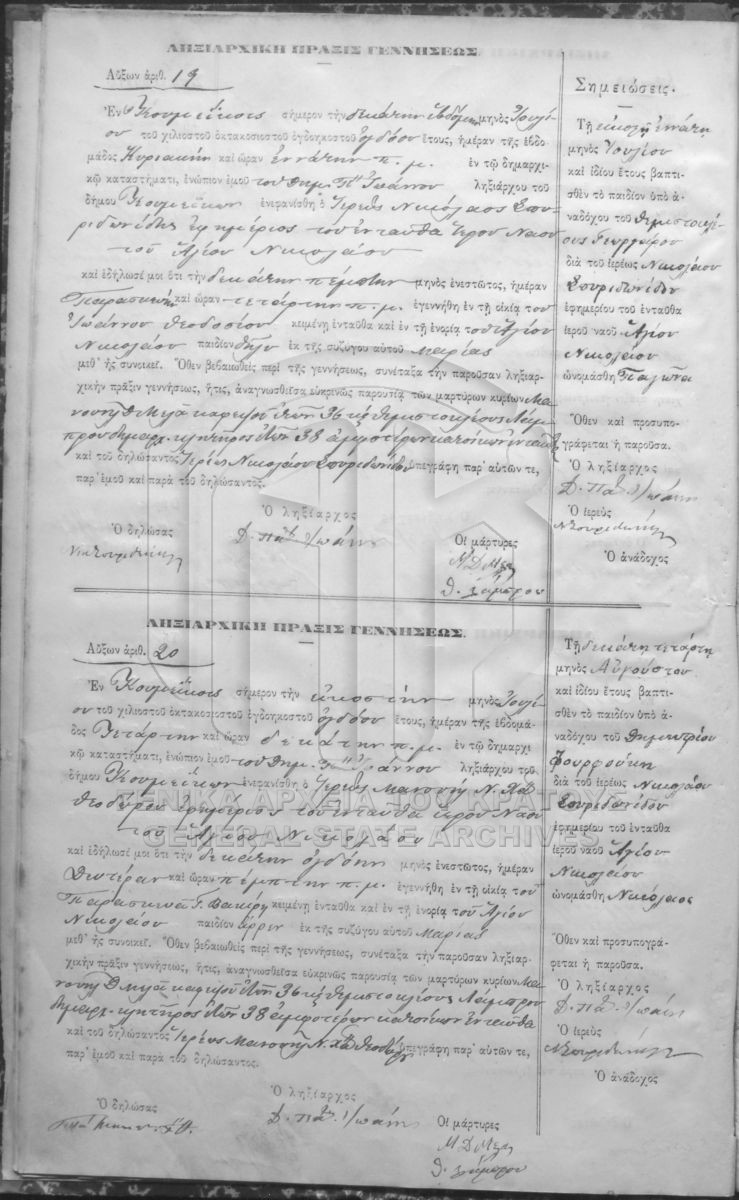 ΛΗΞΙΑΡΧΙΚΗ ΠΡΑΞΙΣ ΓΕΝΝΗΣΕΩΣ
Αὔξων ἀριθ. 19
Ἐν Κουμεΐκοις σήμερον τὴν δεκάτην ἑβδόμην μηνὸς Ἰουλί-
ου τοῦ χιλιοστοῦ ὀκτακοσιοστοῦ ὀγδοηκοστοῦ ὀγδόου ἔτους, ἡμέραν τῆς ἑβδο-
μάδος Κυριακὴν καὶ ὥραν ἐννάτην π. μ. ἐν τῷ δημαρχι-
κῷ καταστήματι, ἐνώπιον ἐμοῦ τοῦ Δημ. Πⁿ Ἰωάννου ληξιάρχου τοῦ
δήμου Κουμεΐκων ἐνεφανίσθη ὁ Ἱερεὺς Νικόλαος Σπυ-
ριδωνίδης ἐφημέριος τοῦ ἐνταῦθα ἱεροῦ Ναοῦ
τοῦ Ἁγίου Νικολάου
καὶ ἐδήλωσέ μοι ὅτι τὴν δεκάτην πέμπτην μηνὸς ἐνεστῶτος, ἡμέραν
Παρασκευὴν καὶ ὥραν τετάρτην π. μ. ἐγεννήθη ἐν τῇ οἰκίᾳ τοῦ
Ἰωάννου Θεοδοσίου κειμένῃ ἐνταῦθα καὶ ἐν τῇ ἐνορίᾳ τοῦ Ἁγίου
Νικολάου παιδίον θῆλυ ἐκ τῆς συζύγου αὐτοῦ Μαρίας
μεθ' ἧς συνοικεῖ. Ὅθεν βεβαιωθεὶς περὶ τῆς γεννήσεως, συνέταξα τὴν παροῦσαν ληξιαρ-
χικὴν πρᾶξιν γεννήσεως, ἥτις, ἀναγνωσθεῖσα εὐκρινῶς παρουσίᾳ τῶν μαρτύρων κυρίων Μα-
νουὴλ Δ Μελᾶ καφετζοῦ ἐτῶν 36 κ Θεμιστοκλέους Λάμ-
πρου δημαρχ. κλητῆρος ἐτῶν 38 ἀμφοτέρων κατοίκων ἐνταῦθα
καὶ τοῦ δηλώσαντος Ἱερέως Νικολάου Σπυριδωνίδου ὑπεγράφη παρ' αὐτῶν τε,
παρ' ἐμοῦ καὶ παρὰ τοῦ δηλώσαντος.
Ὁ ληξίαρχος
Ὁ δηλώσας Δ. Πᾶ Ἰωάννου Οἱ μάρτυρες
Νικ Σπυριδωνίδης Μ Δ Μελᾶς
Θ. Λάμπρου
Σημειώσεις.
Τῇ εἰκοστῇ ἐννάτῃ
μηνὸς Ἰουλίου
καὶ ἰδίου ἔτους βαπτι-
σθὲν τὸ παιδίον ὑπὸ ἀ-
ναδόχου τοῦ Θεμιστοκλέ-
ους Γεωργίρου
διὰ τοῦ ἱερέως Νικολάου
Σπυριδωνίδου
ἐφημερίου τοῦ ἐνταῦθα
ἱεροῦ ναοῦ Ἁγίου
Νικολάου
ὠνομάσθη
Ὅθεν καὶ προσυπο-
γράφεται ἡ παροῦσα.
Ὁ ληξίαρχος
Δ. Πᾶ Ἰωάννου
Ὁ ἱερεὺς
Ν Σπυριδωνίδης
Ὁ ἀνάδοχος
ΛΗΞΙΑΡΧΙΚΗ ΠΡΑΞΙΣ ΓΕΝΝΗΣΕΩΣ.
Αὔξων ἀριθ. 20
Ἐν Κουμεΐκοις σήμερον τὴν εἰκοστὴν μηνὸς Ἰουλί-
ου τοῦ χιλιοστοῦ ὀκτακοσιοστοῦ ὀγδοηκοστοῦ ὀγδόου ἔτους, ἡμέραν τῆς ἑβδομά-
δος Τετάρτην καὶ ὥραν δεκάτην π. μ. ἐν τῷ δημαρχι-
κῷ καταστήματι, ἐνώπιον ἐμοῦ τοῦ Δημ. Πⁿ Ἰωάννου ληξιάρχου τοῦ
δήμου Κουμεΐκων ἐνεφανίσθη ὁ Ἱερεὺς Μανουὴλ Ν. Χ
Θεοδώρου ἐφημέριος τοῦ ἐνταῦθα ἱεροῦ Ναοῦ
τοῦ Ἁγίου Νικολάου
καὶ ἐδήλωσέ μοι ὅτι τὴν δεκάτην ὀγδόην μηνὸς ἐνεστῶτος, ἡμέραν
Δευτέραν καὶ ὥραν πέμπτην π. μ. ἐγεννήθη ἐν τῇ οἰκίᾳ τοῦ
Παρασκευᾶ Γ. Βακίρη κειμένῃ ἐνταῦθα καὶ ἐν τῇ ἐνορίᾳ τοῦ Ἁγίου
Νικολάου παιδίον ἄρρεν ἐκ τῆς συζύγου αὐτοῦ Μαρίας
μεθ' ἧς συνοικεῖ. Ὅθεν βεβαιωθεὶς περὶ τῆς γεννήσεως, συνέταξα τὴν παροῦσαν ληξιαρ-
χικὴν πρᾶξιν γεννήσεως, ἥτις, ἀναγνωσθεῖσα εὐκρινῶς παρουσίᾳ τῶν μαρτύρων κυρίων Μα-
νουὴλ Δ Μελᾶ καφετζοῦ ἐτῶν 36 κ Θεμιστοκλέους Λάμπρου
δημαρχ. κλητῆρος ἐτῶν 38 ἀμφοτέρων κατοίκων ἐνταῦθα
καὶ τοῦ δηλώσαντος Ἱερέως Μανουὴλ Ν. Χ Θεοδώρου ὑπεγράφη παρ' αὐτῶν τε,
παρ' ἐμοῦ καὶ παρὰ τοῦ δηλώσαντος.
Ὁ ληξίαρχος
Ὁ δηλώσας Δ. Πᾶ Ἰωάννου Οἱ μάρτυρες
Μ Δ Μελᾶς
Θ. Λάμπρου
Τῇ δεκάτῃ τετάρτῃ
μηνὸς Αὐγούστου
καὶ ἰδίου ἔτους βαπτι-
σθὲν τὸ παιδίον ὑπὸ ἀ-
ναδόχου τοῦ Δημητρίου
Φουρφούκη
διὰ τοῦ ἱερέως Νικολάου
Σπυριδωνίδου
ἐφημερίου τοῦ ἐνταῦθα
ἱεροῦ ναοῦ Ἁγίου
Νικολάου
ὠνομάσθη Νικόλαος
Ὅθεν καὶ προσυπογρά-
φεται ἡ παροῦσα.
Ὁ ληξίαρχος
Δ. Πᾶ Ἰωάννου
Ὁ ἱερεὺς
Ν Σπυριδωνίδης
Ὁ ἀνάδοχος
ΓΕΝΙΚΑ ΑΡΧΕΙΑ ΤΟΥ ΚΡΑΤΟΥΣ
GENERAL STATE ARCHIVES